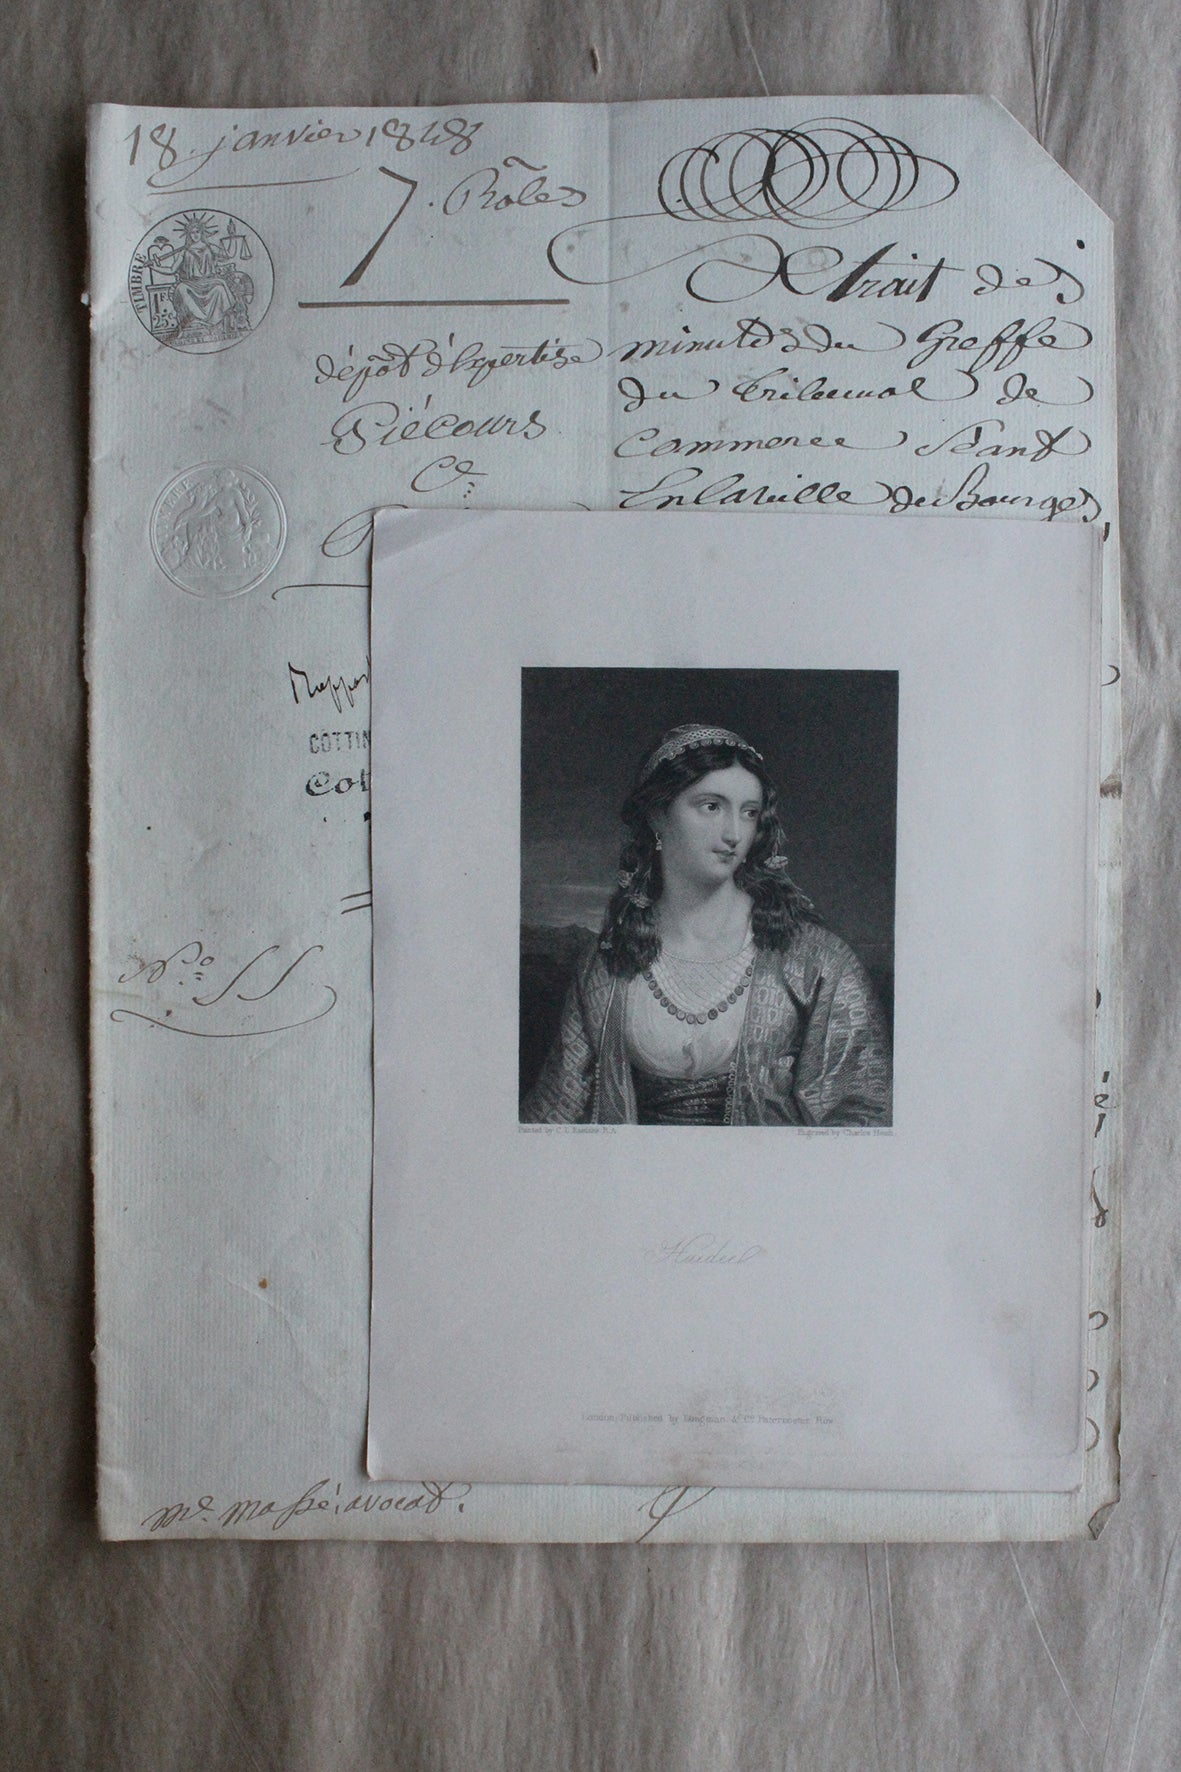 18 janvier 1848
7. Rôles
TIMBRE
1F
25c
Extrait des
minutes du Greffe
du Tribunal de
Commerce Séant
En la ville de Bourges
dépôt d'Expertise
Piécours
Ce
Rappor
COTTIN
Cot
No. 55
Painted by C. L. Eastlake R.A.
Engraved by Charles Heath
Haideé
London, Published by Longman & Co. Paternoster Row
Me. Massé, avocat.